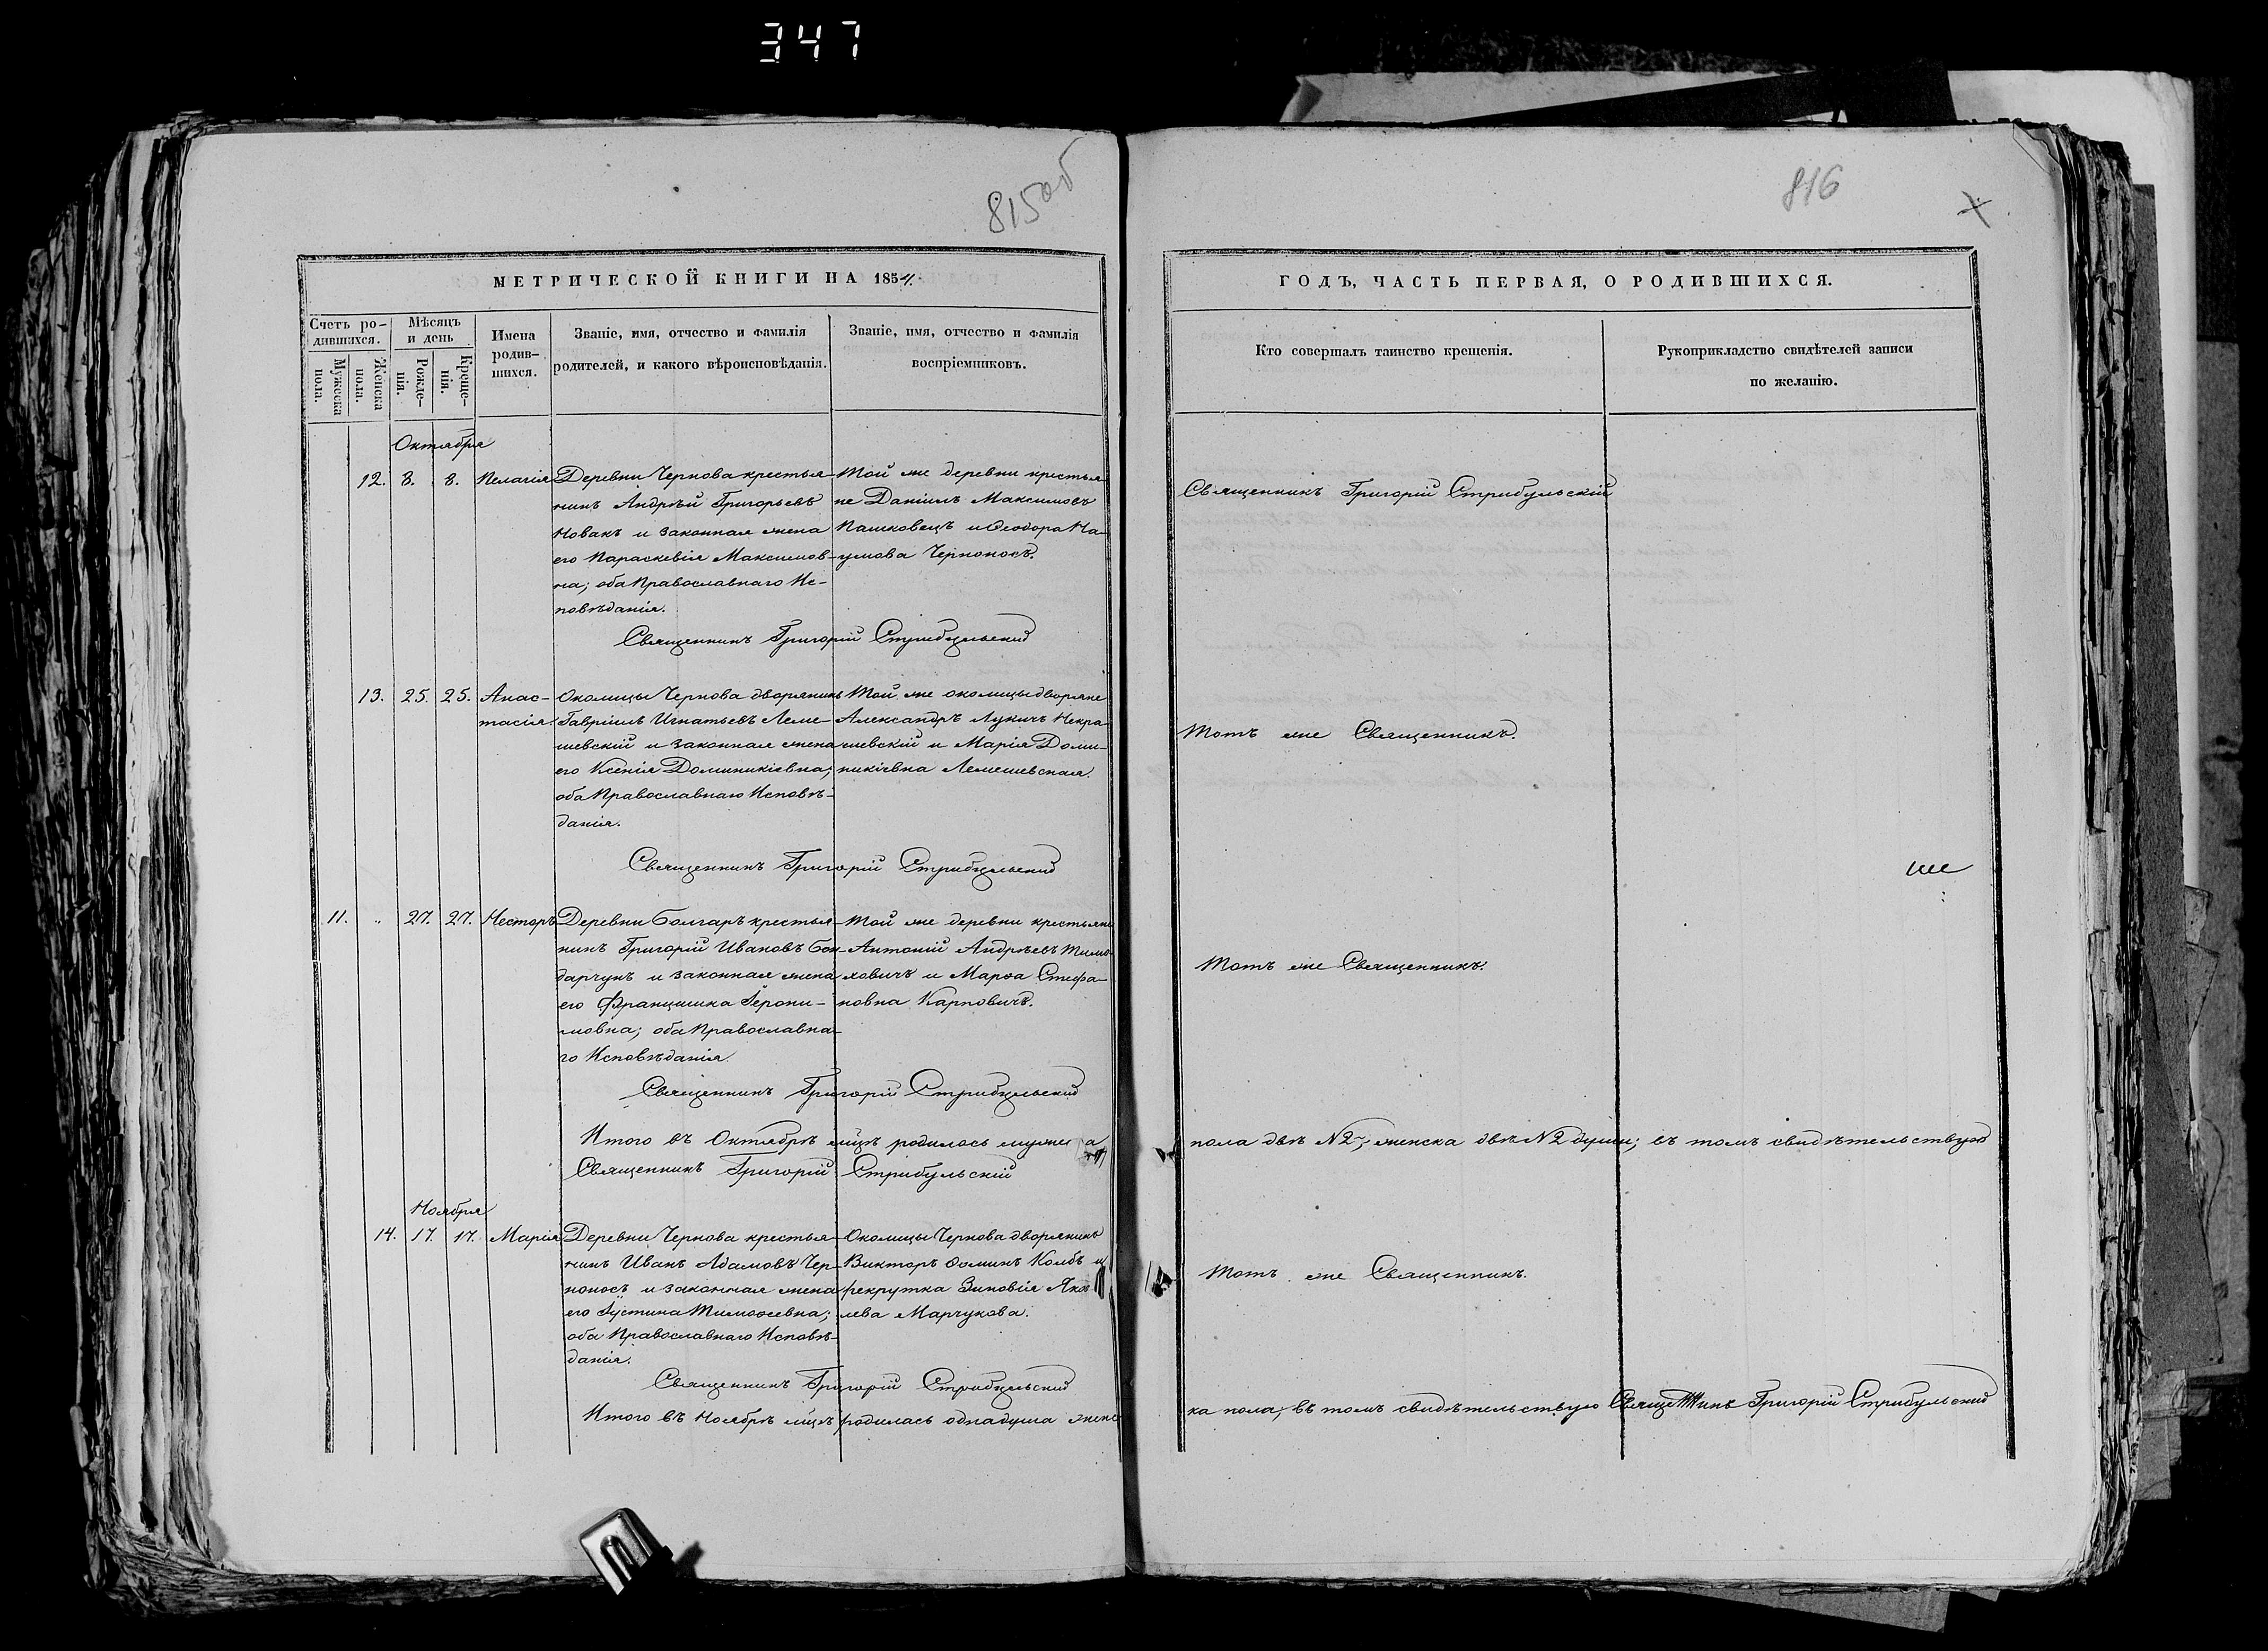 347
815об
816
МЕТРИЧЕСКОЙ КНИГИ НА 1854.
ГОДЪ, ЧАСТЬ ПЕРВАЯ, О РОДИВШИХСЯ.
Счетъ ро-
дившихся.
Мужеска
пола.
Женска
пола.
Мѣсяцъ
и день
Рожде-
нія.
Креще-
нія.
Имена
родив-
шихся.
Званіе, имя, отчество и фамилія
родителей, и какого вѣроисповѣданія.
Званіе, имя, отчество и фамилія
воспріемниковъ.
Кто совершалъ таинство крещенія.
Рукоприкладство свидѣтелей записи
по желанію.
Октября
12. 8. 8. Пелагія
Деревни Чернова крестья-
нинъ Андрѣй Григорьевъ
Новакъ и законная жена
его Параскевія Максимов-
на; оба Православнаго Ис-
повѣданія.
Той же деревни крестья
не Даніилъ Максимовъ
Пашковецъ и Ѳеодора На-
умова Черноносъ.
Священникъ Григорій Стрибульскій
Священникъ Григорій Стрибульскій
13. 25. 25. Анас-
тасія
Околицы Чернова дворянинъ
Гавріилъ Игнатьевъ Леме-
шевскій и законная жена
его Ксенія Доминикіевна;
оба Православнаго Исповѣ-
данія.
Той же околицы дворяне
Александръ Лукичъ Некра
шевскій и Марія Доми-
никіевна Лемешевская.
Тотъ же Священникъ.
Священникъ Григорій Стрибульскій
11. „ 27. 27. Несторъ
Деревни Болгаръ крестья-
нинъ Григорій Ивановъ Бон-
дарчукъ и законная жена
его Францишка Іерони-
мовна; оба Православна-
го Исповѣданія.
Той же деревни крестьяне
Антоній Андрѣевъ
ховичъ и Марѳа Стефа-
новна Карповичъ.
Тотъ же Священникъ.
Священникъ Григорій Стрибульскій
Итого въ Октябрѣ мцѣ родилось мужес а
пола двѣ №2, женска двѣ №2 души; въ томъ свидѣтельствую
Священникъ Григорій Стрибульскій
Ноября
14. 17. 17. Марія
Деревни Чернова крестья-
нинъ Иванъ Адамовъ Чер-
ноносъ и законная жена
его Іустина Тимоѳеевна;
оба Православнаго Исповѣ-
данія.
Околицы Чернова дворянинъ
Викторъ Ѳоминъ Колбъ и
рекрутка Зиновія Яков
лева Марчукова.
Тотъ же Священникъ.
Священникъ Григорій Стрибульскій
Итого въ Ноябрѣ мцѣ родилась одна душа женс
ка пола; въ томъ свидѣтельствую Священникъ Григорій Стрибульскій